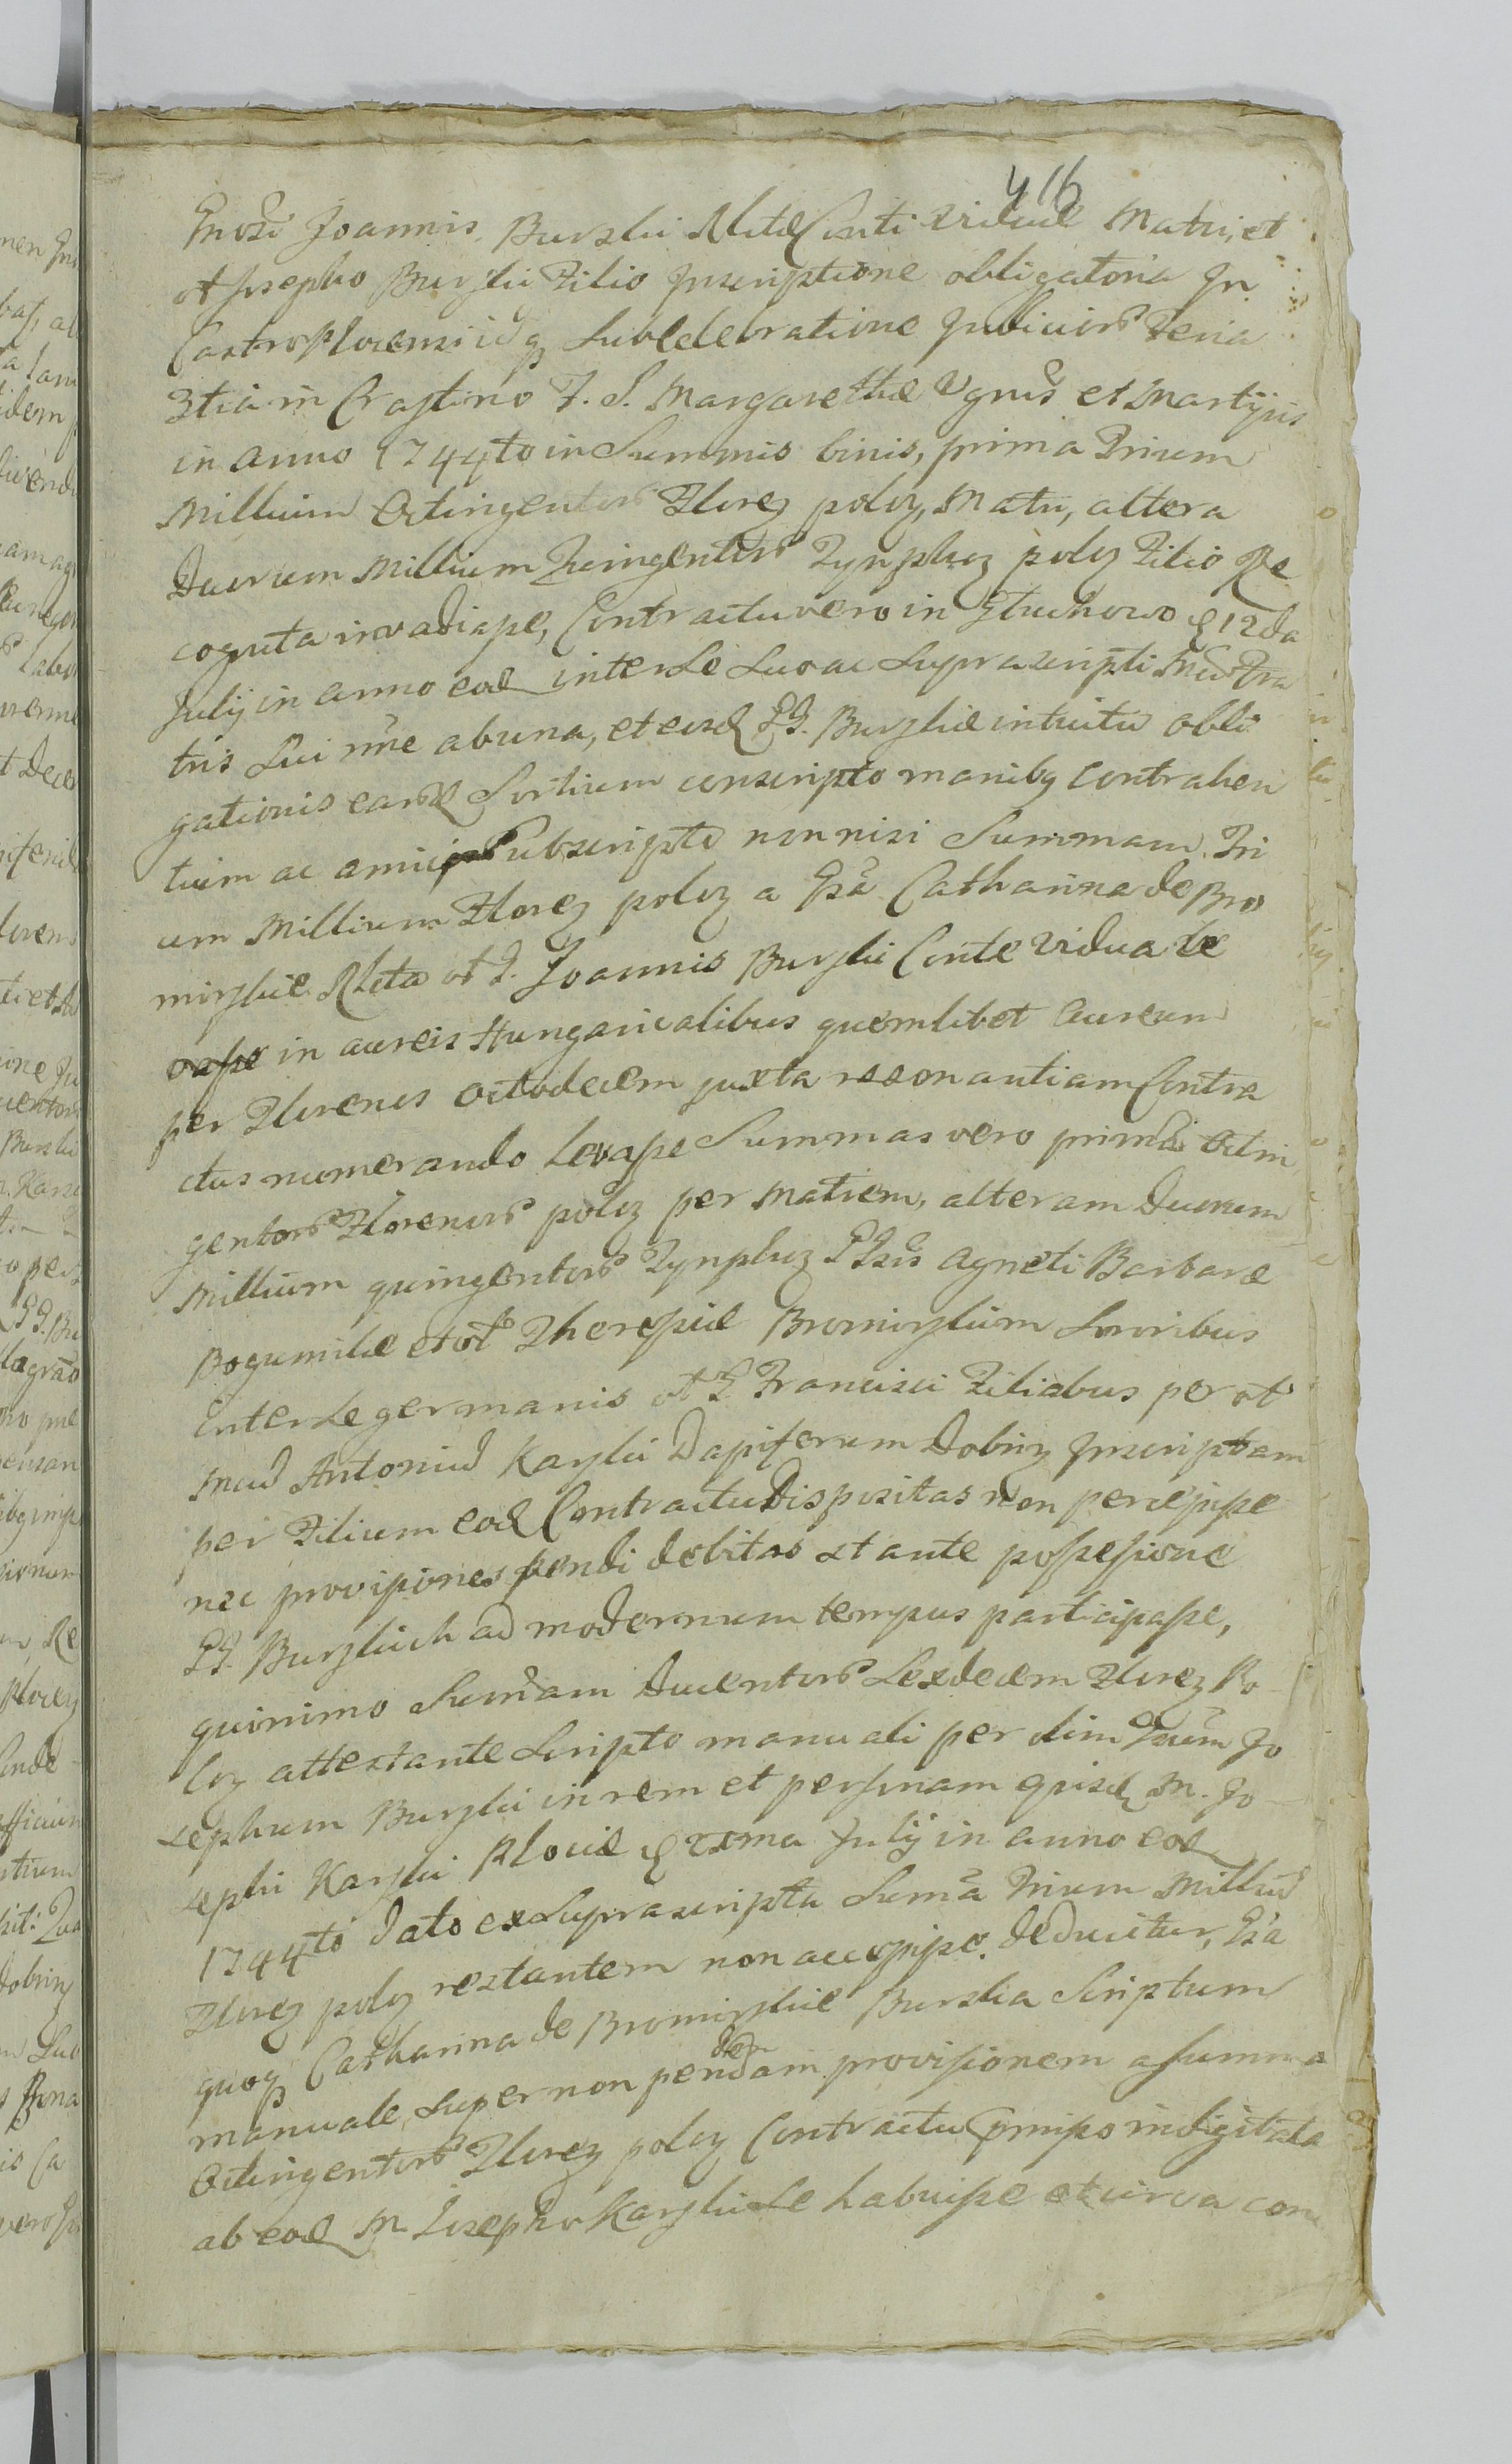 416
Gnosi Joannis Burski Rlictæ Consti viduæ Matri, et
olt Josepho Burski Filio Inscriptione obligatoria In
Castro Plocensi idq sub celebratione Judicior Feria
3tia in Crastino F. S. Margarethæ Vgnis et Martijris
in anno 1744to in Summis binis, prima Trium
Millium Octingentor Floreż poloż, Matri, altera
Duorum Millium Quingentor Tynphoż poloż Filio Re
cognita invadiasse, Contractu vero in Głuchowo 12da
Julij in anno eod inter se suo ac suprascripti Mci Fra
tris sui nne ab una, et eisd GG. Burskie intuitu obli
gationis eard Sortium conscripto manibq contrahen
tium ac amicor Subscripto non nisi Summam Tri
um Millium Floreż poloż a Gsa Catharina de Bro
mirskie Rlicta olt G. Joannis Burski Conste Vidua le
vasse in aureis Hungaricalibus quemlibet aureum
per Florenos octodecem juxta resonantiam Contra
ctus numerando levasse Summas vero primam Octin
gentor Florenor poloż per Matrem, alteram Duorum
Millium quingentor Tynphoż GGsis Agneti Barbaræ
Bogumilæ et olt Theresiæ Bromirskiim Sororibus
inter se germanis olt G Francisci Filiabus per olt
Mcum Antonium Karski Dapiferum Dobrin Inscriptam
per Filium eod Contractu Dispositas non percepisse
nec provisiones pendi debitas et ante possesione
GG. Burskich ad modernum tempus participasse,
quinimo Summam Ducentor Sexdecem Floreż Po
loż attestante Scripto manuali per olim Gnum Jo
sephum Burski in rem et personam ejusd M. Jo
sephi Karski Plociæ 2xma Julij in anno eod
1744to Dato ex Suprascripta Summa Trium Milliu
Floreż poloż restantem non accepisse. Deducitur, Gsa
quoq Catharina de Bromirskie Burska Scriptum
manuale super non pendam provisionem a Summa
den
Octingentor Floreż poloż Contractu pmisso indigitata
ab eod M Josepho Karski se habuisse et circa con